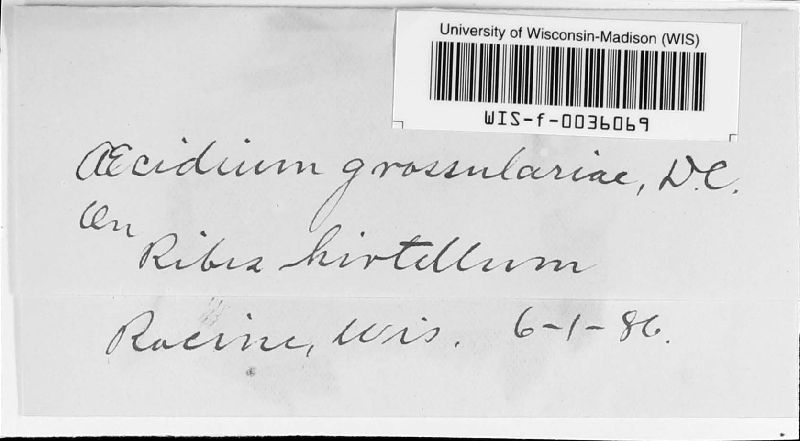 University of Wisconsin-Madison (WIS)
WIS-f-0036069
Æcidium grossulariae, D.C.
On
Ribes hirtellum
Racine, Wis. 6-1-86.